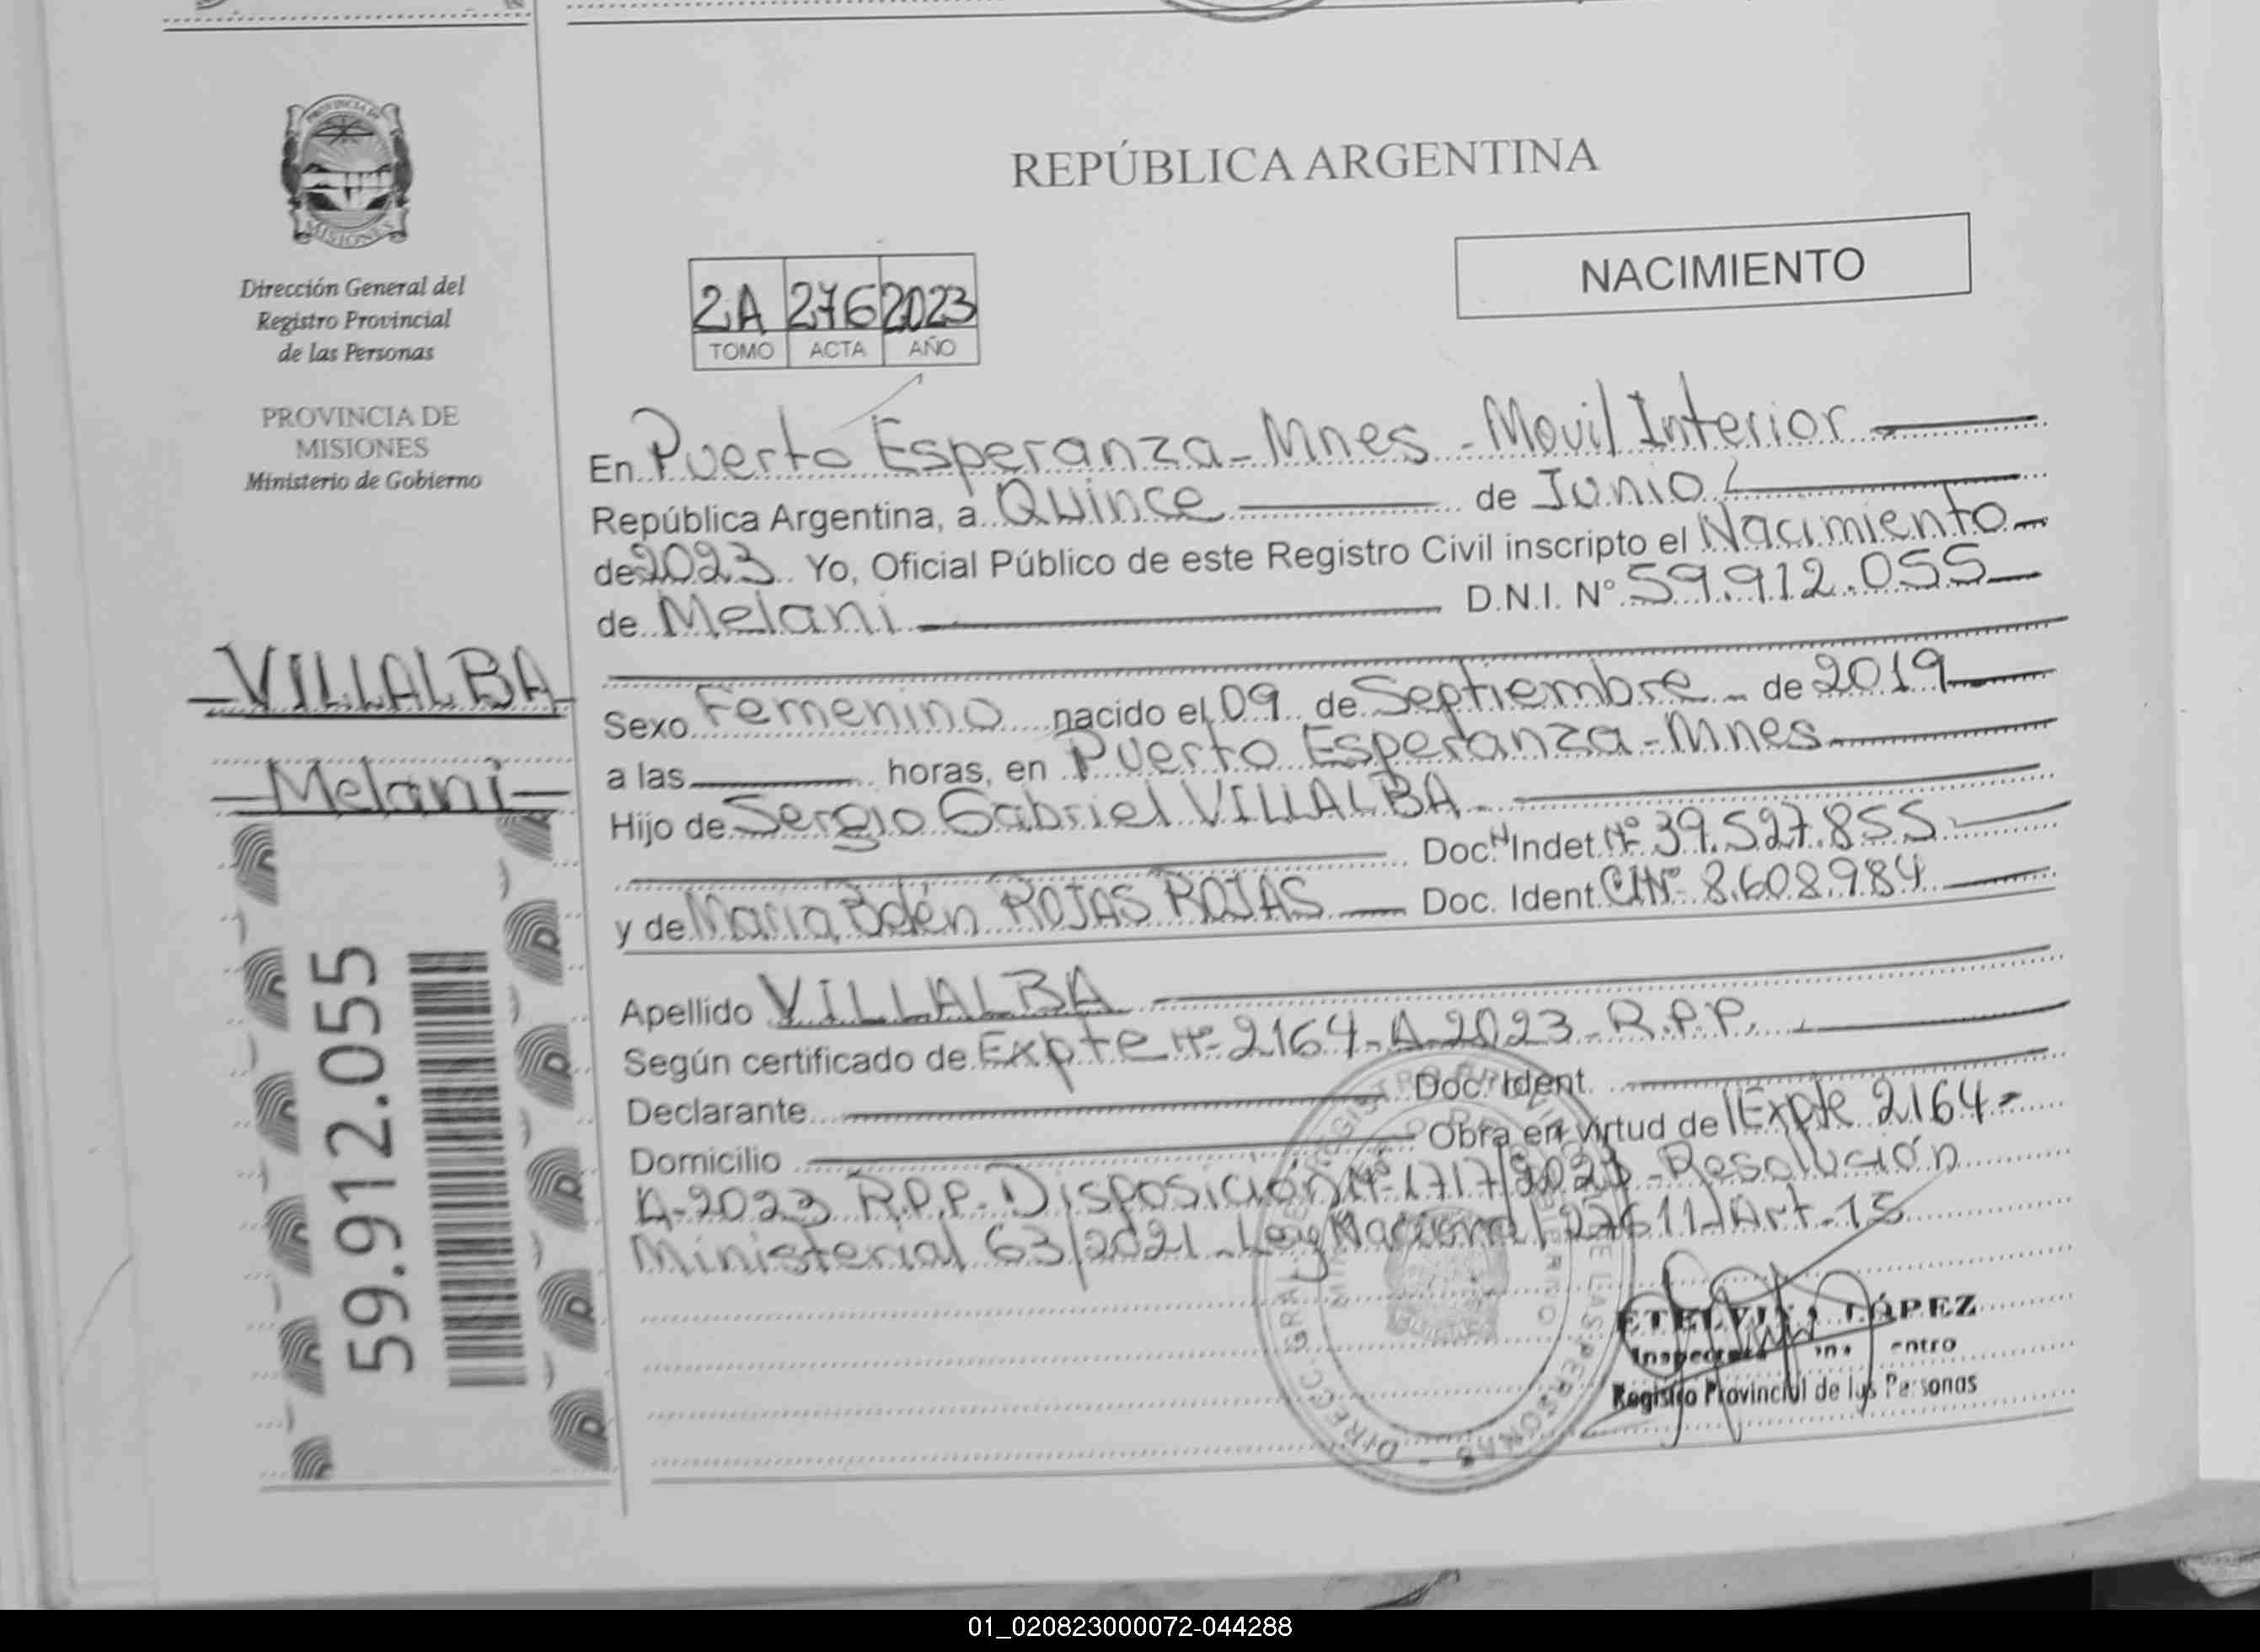 PROVINCIA DE
MISIONES
Dirección General del
Registro Provincial
de las Personas
PROVINCIA DE
MISIONES
Ministerio de Gobierno
VILLALBA
Melani
59.912.055
REPÚBLICA ARGENTINA
NACIMIENTO
2A 276 2023
TOMO ACTA AÑO
En Puerto Esperanza - Mnes - Movil Interior
República Argentina, a Quince de Junio
de 2023 Yo, Oficial Público de este Registro Civil inscripto el Nacimiento
de Melani D.N.I. N° 59.912.055
Sexo Femenino nacido el 09 de Septiembre de 2019
a las horas, en Puerto Esperanza - Mnes
Hijo de Sergio Gabriel VILLALBA
Doc. Indet. N° 39.527.855
y de María Belén ROJAS ROJAS Doc. Ident. CI N° 8.608.984
Apellido VILLALBA
Según certificado de Expte N° 2164-A-2023-R.P.P.
Declarante Doc. Ident.
Domicilio Obra en virtud de Expte 2164-
A-2023 R.P.P. Disposición N° 1717/2023 - Resolución
Ministerial 63/2021 - Ley Nacional 27611 Art-15
DIRECC. GRAL. REGISTRO PROVINCIAL DE LAS PERSONAS
ETELVINA LÓPEZ
Registro Provincial de las Personas
01_020823000072-044288